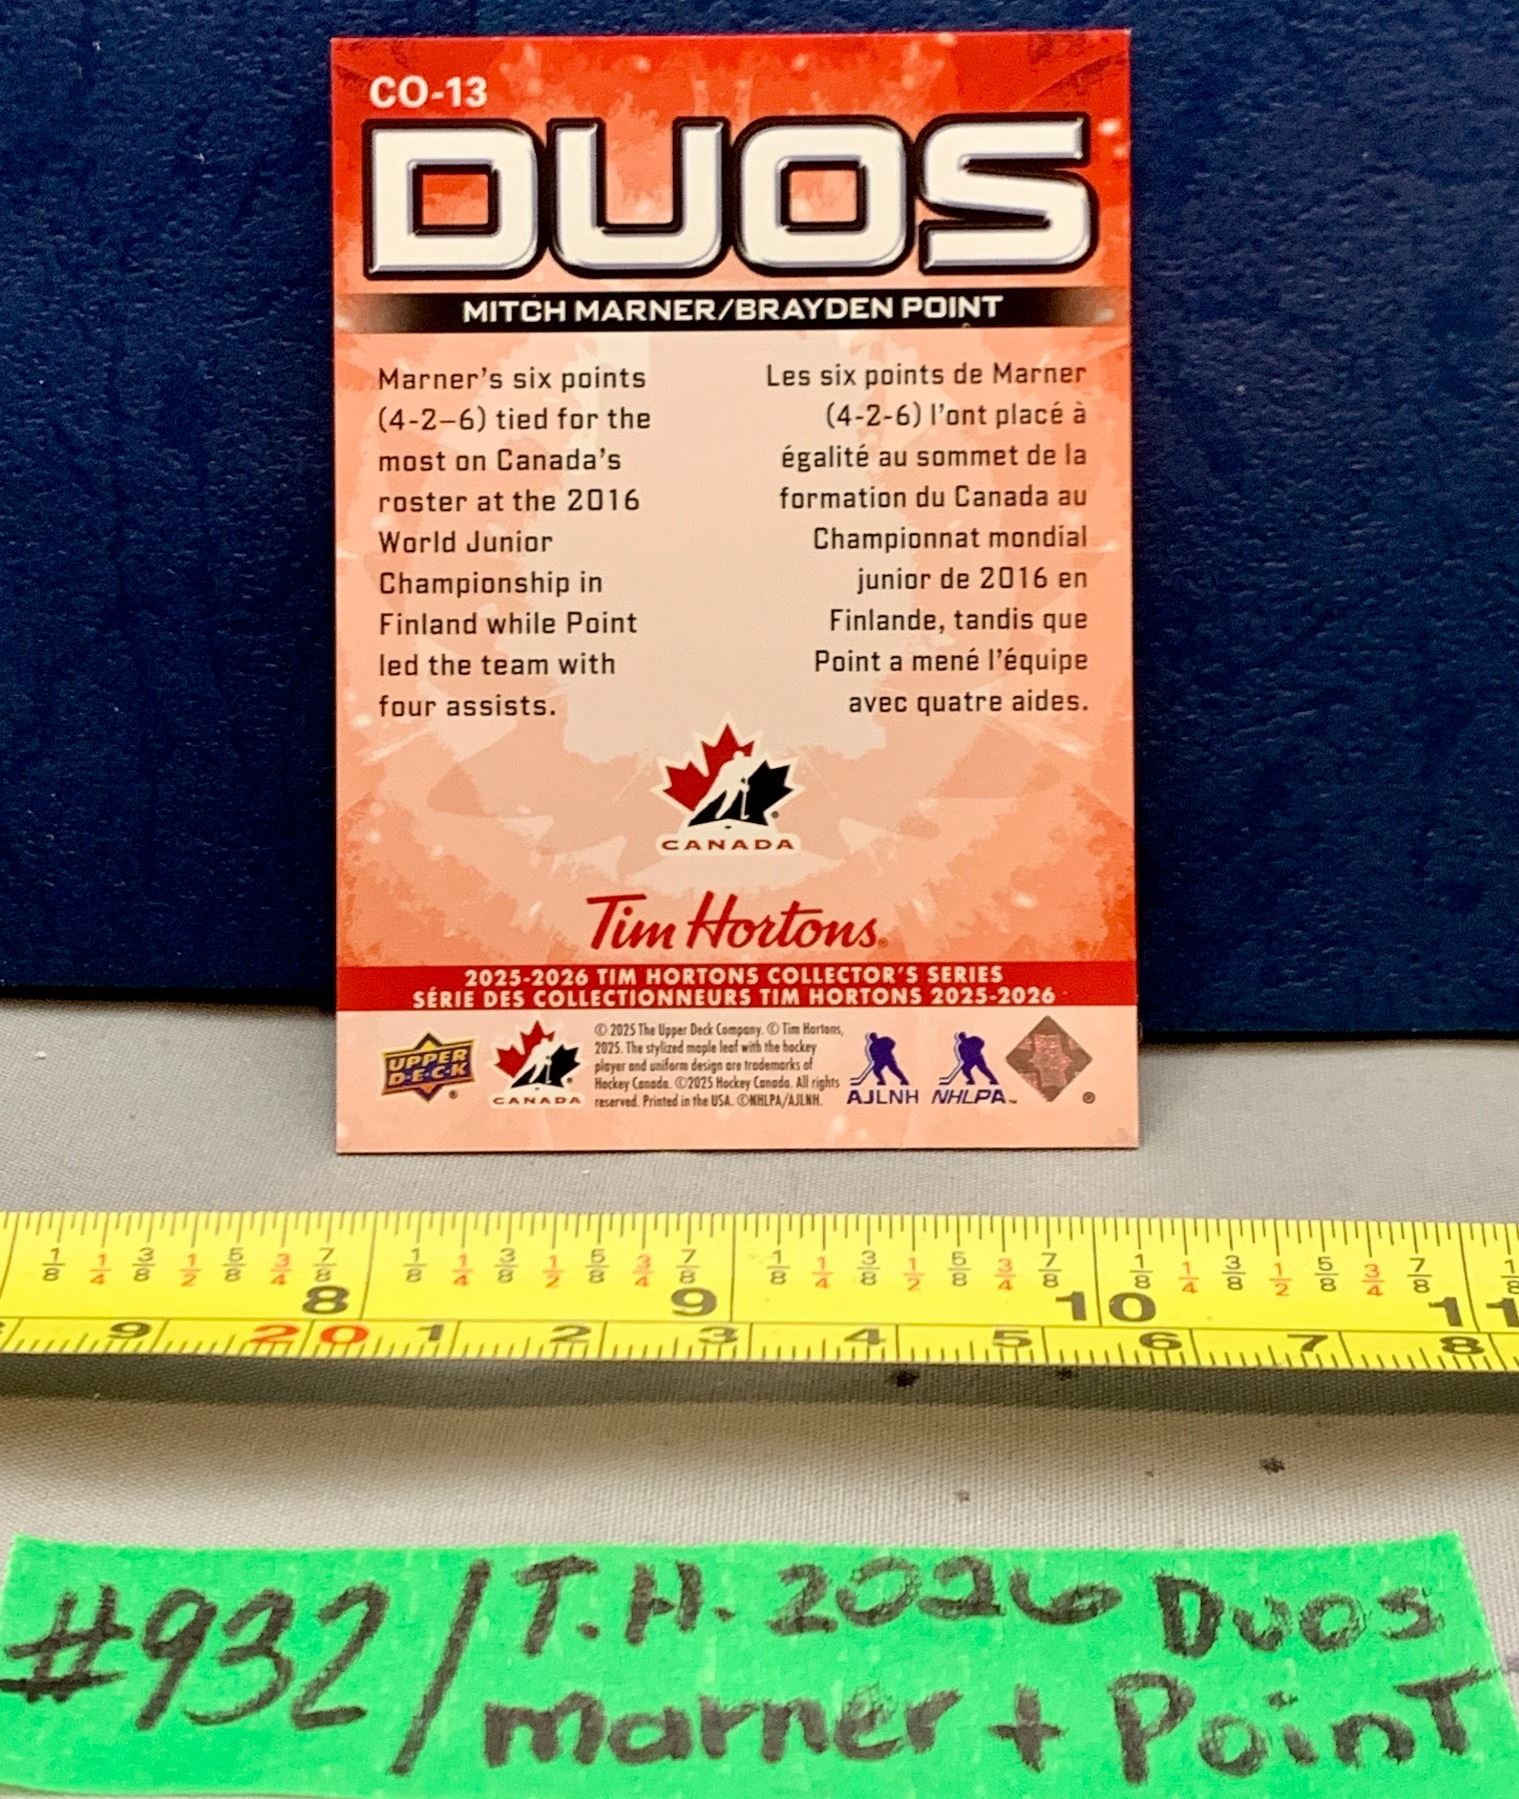 CO-13
DUOS
MITCH MARNER/BRAYDEN POINT
Marner's six points
(4-2–6) tied for the
most on Canada's
roster at the 2016
World Junior
Championship in
Finland while Point
led the team with
four assists.
Les six points de Marner
(4-2-6) l'ont placé à
égalité au sommet de la
formation du Canada au
Championnat mondial
junior de 2016 en
Finlande, tandis que
Point a mené l'équipe
avec quatre aides.
CANADA
Tim Hortons®
2025-2026 TIM HORTONS COLLECTOR'S SERIES
SÉRIE DES COLLECTIONNEURS TIM HORTONS 2025-2026
UPPER
D·E·C·K
®
CANADA
© 2025 The Upper Deck Company. © Tim Hortons,
2025. The stylized maple leaf with the hockey
player and uniform design are trademarks of
Hockey Canada. ©2025 Hockey Canada. All rights
reserved. Printed in the USA. ©NHLPA/AJLNH.
AJLNH NHLPA™ ®
1/8 1/4 3/8 1/2 5/8 3/4 7/8 1/8 1/4 3/8 1/2 5/8 3/4 7/8 1/8 1/4 3/8 1/2 5/8 3/4 7/8 1/8 1/4 3/8 1/2 5/8 3/4 7/8 1/8
8 9 10 11
9 20 1 2 3 4 5 6 7 8
#932/T.H. 2026 Duos
Marner + Point